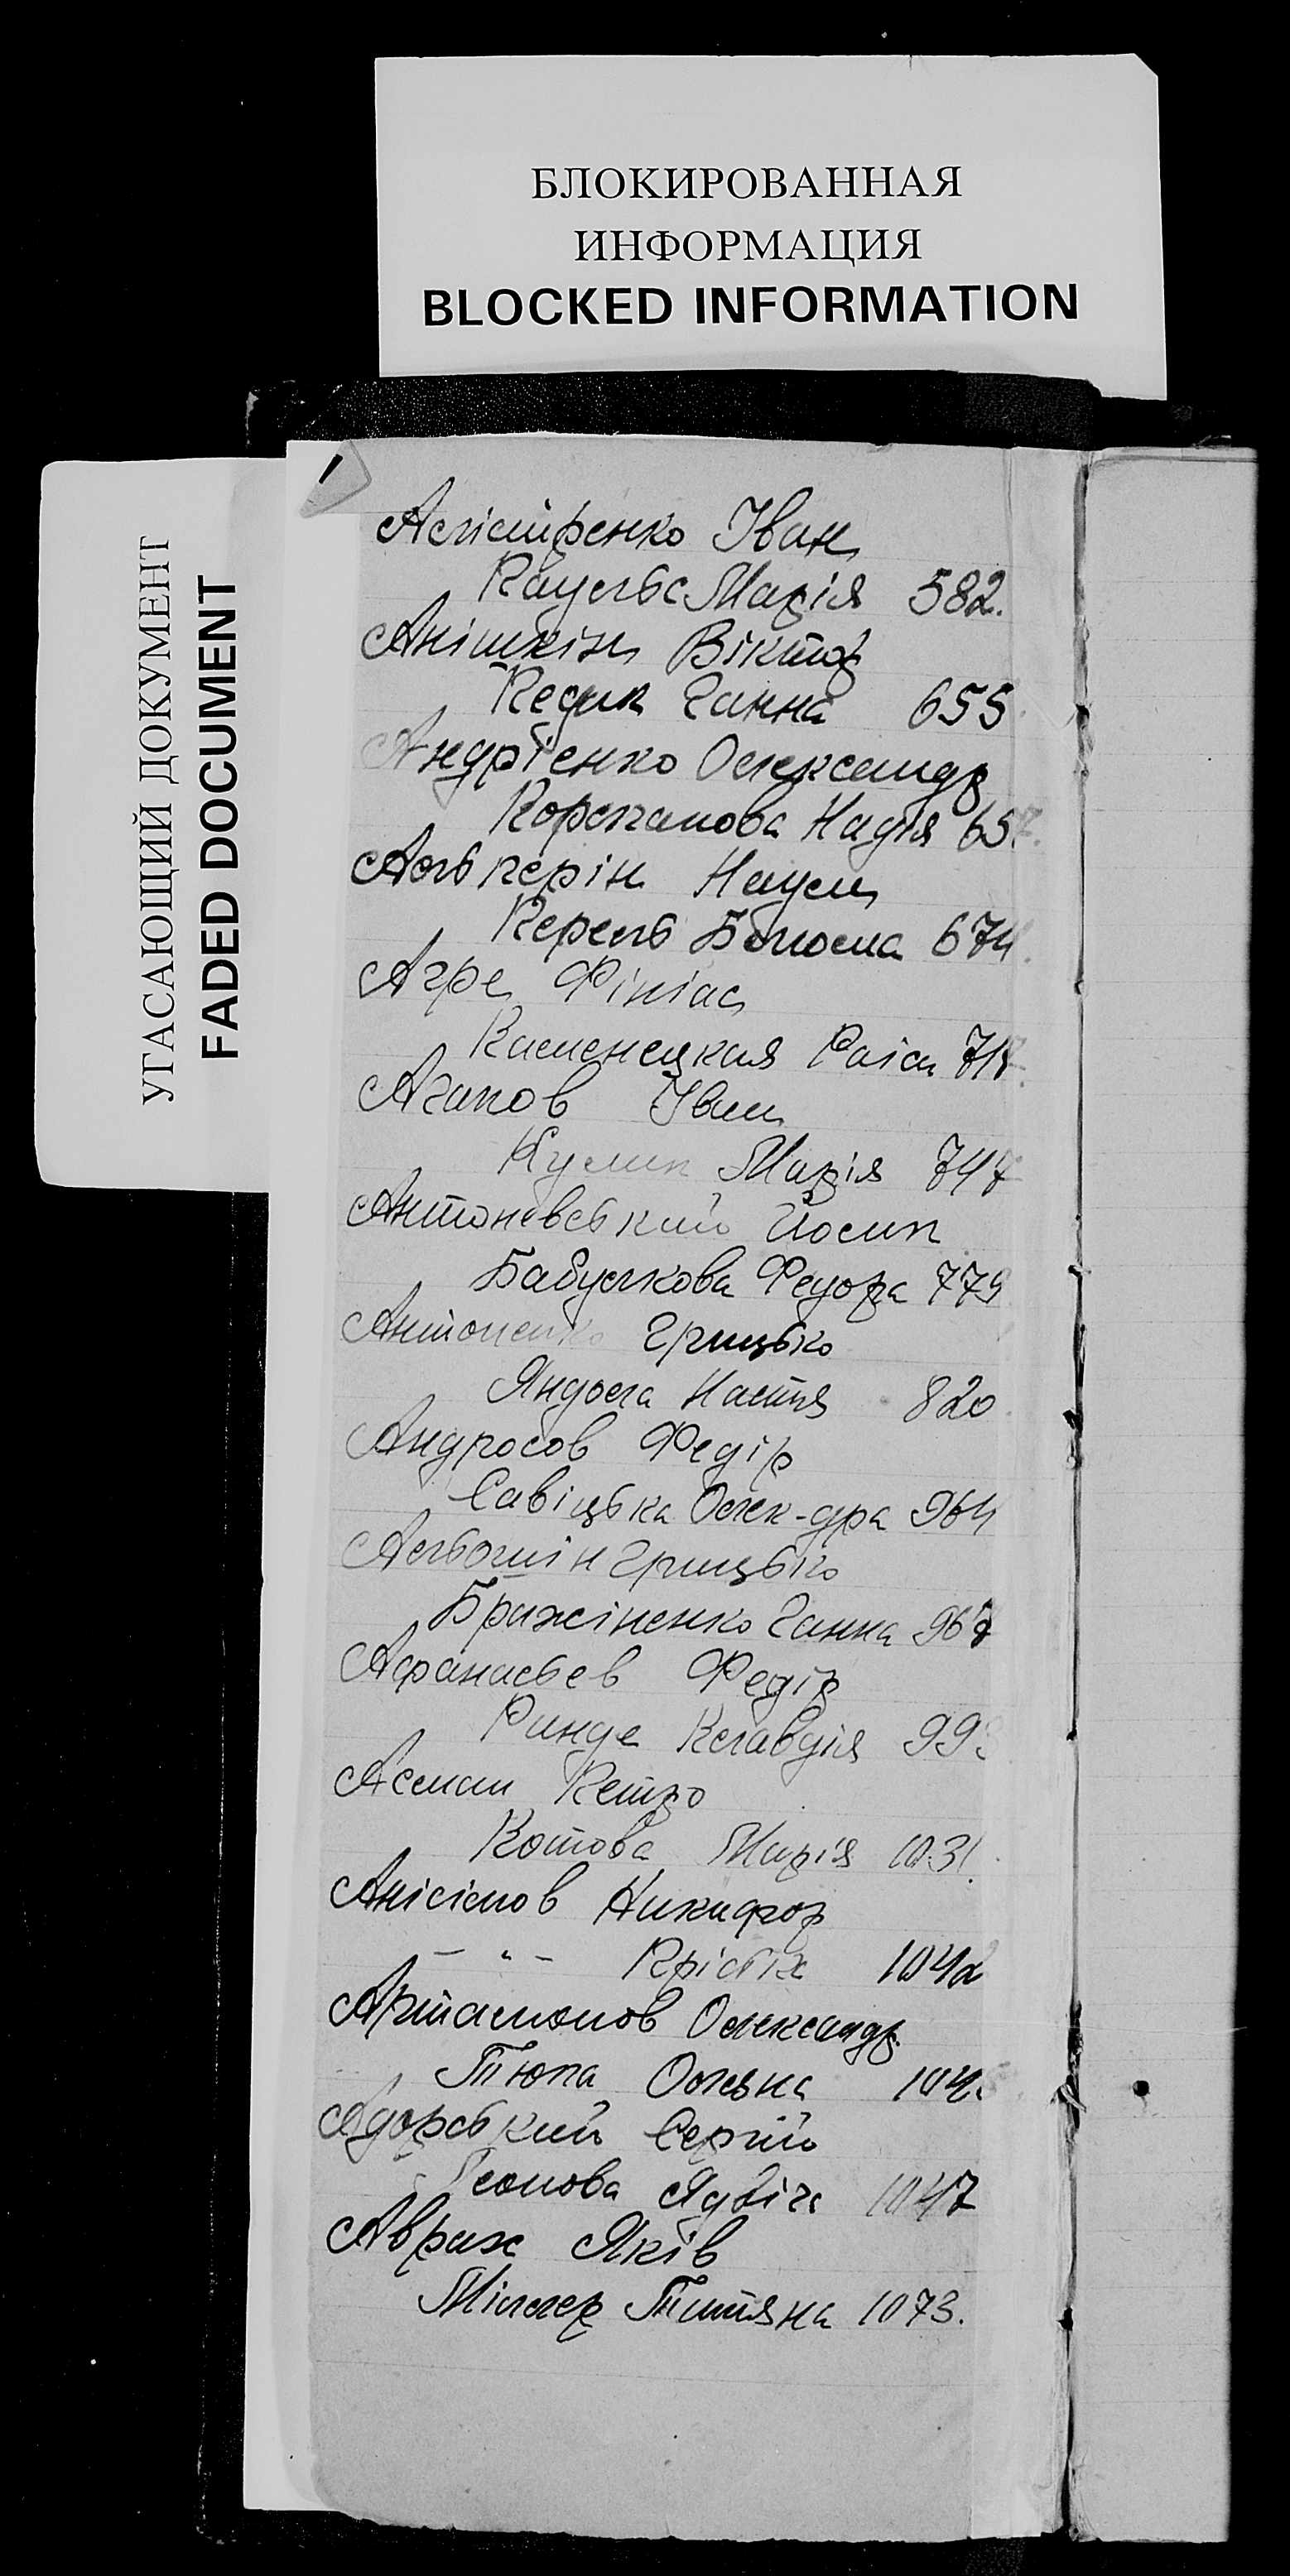 БЛОКИРОВАННАЯ
ИНФОРМАЦИЯ
BLOCKED INFORMATION
УГАСАЮЩИЙ ДОКУМЕНТ
FADED DOCUMENT
1
Алістренко Іван
Каульс Марія 582.
Анішкін Віктор
Кедик Ганна 655
Андрієнко Олександр
Корепанова Надія 657.
Альперін Наум
Керель Блюма 674.
Агре Фініас
Каменецкая Раіса 718.
Агапов Іван
Кулик Марія 747
Антоневський Йосип
Бабушкова Федора 779
Антоненко Грицько
Яндола Настя 820
Андросов Федір
Савіцька Олек-дра 964
Альошін Грицько
Брижіненко Ганна 967
Афанасьев Федір
Ринде Клавдія 99
Асман Петро
Котова Марія 1031.
Анісімов Никифор
— " — 1042
Артамонов Олександр
Тюпа Олена 104
Адорський Сергій
Ядвіга 1047
Аврах Яків
Міллер Титяна 1073.